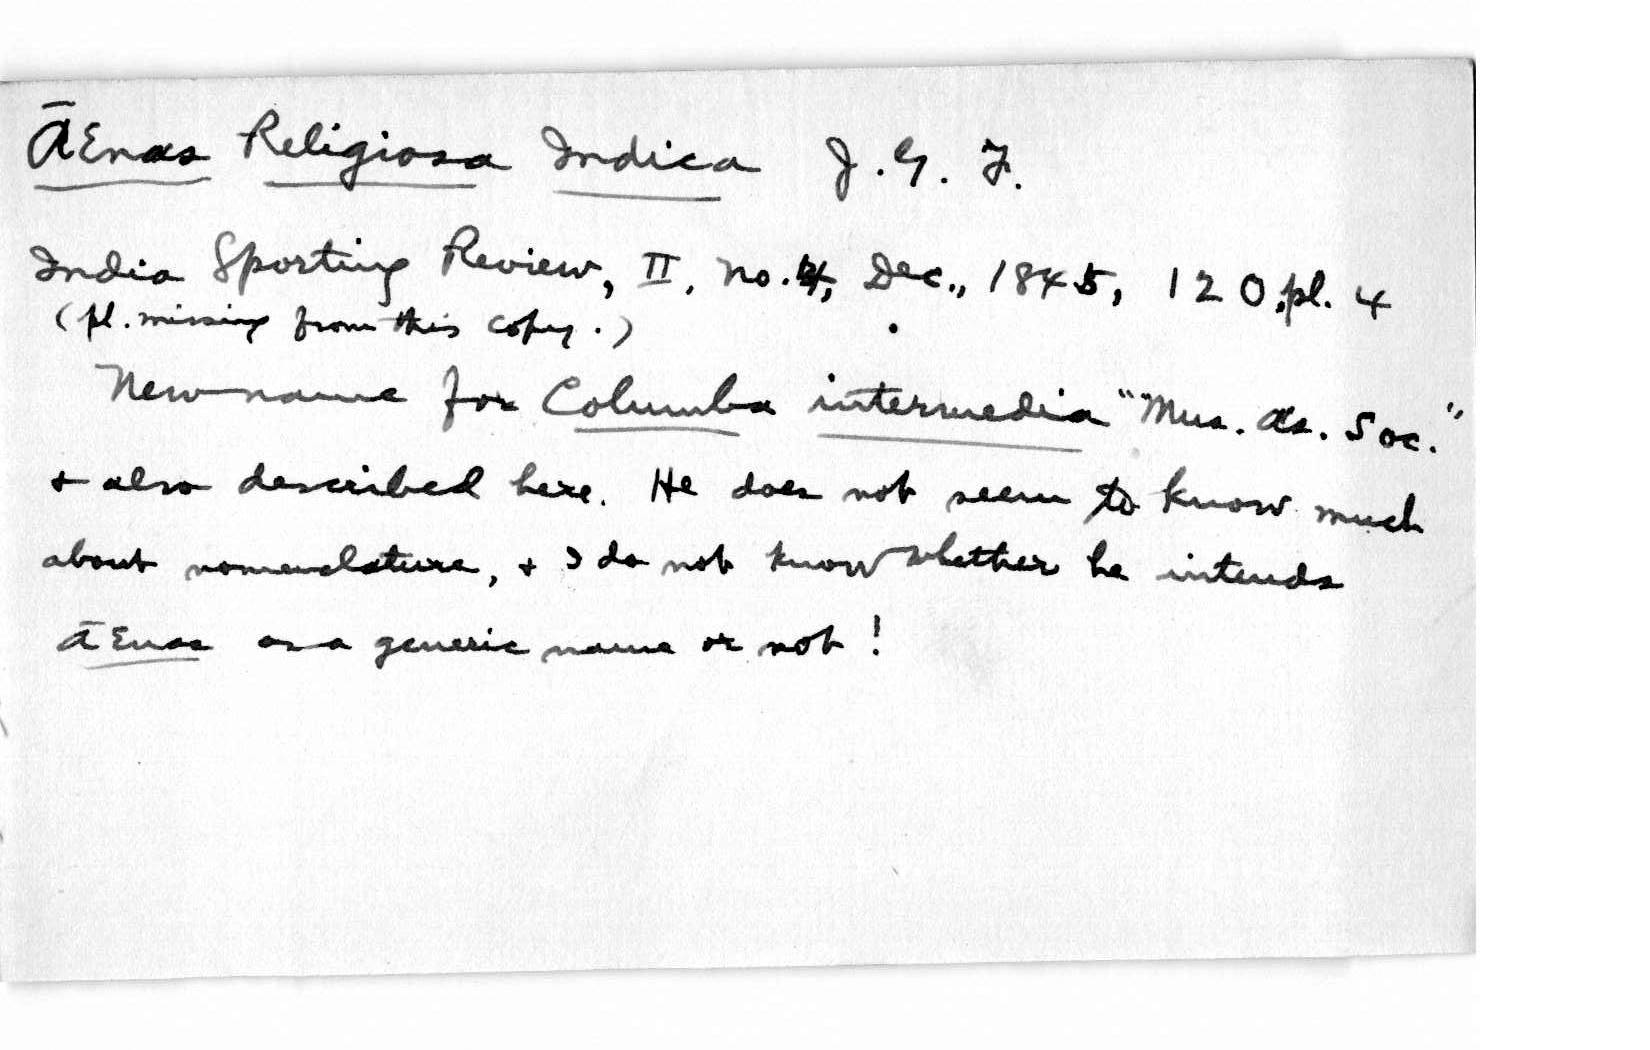 ĀEnas Religiosa Indica J. G. F.
India Sporting Review, II, no. 4, Dec., 1845, 120, pl. 4
(pl. missing from this copy.)
New name for Columba intermedia "Mus. As. Soc."
+ also described here. He does not seem to know much
about nomenclature, + I do not know whether he intends
ĀEnas as a generic name or not!